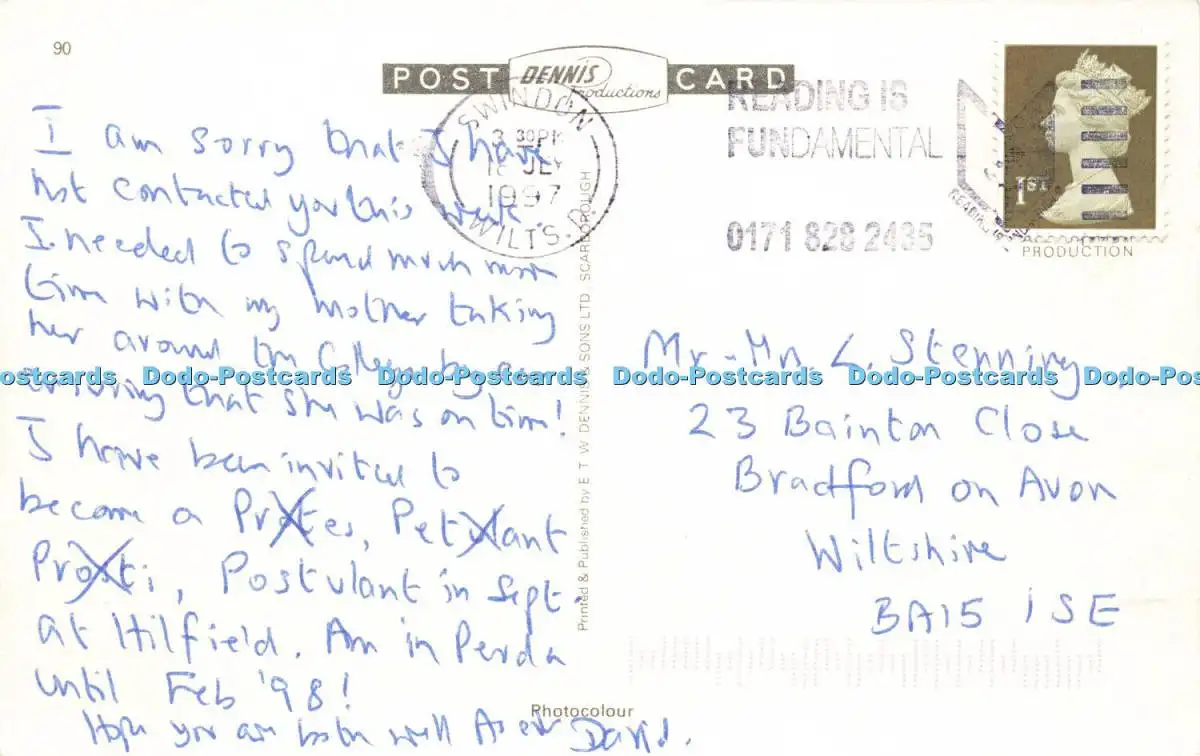 90
POST DENNIS Productions CARD
SWINDON
3 30PM
JLY
1997
WILTS.
READING IS
FUNDAMENTAL
0171 828 2435
1ST
PRODUCTION
I am sorry that I have
not contacted you this week.
I needed to spend much more
time with my mother taking
her around the
ensuring that she was on time!
I have been invited to
become a Protes, Petulant
Prosti, Postulant in Sept.
at Hilfield. Am in
until Feb '98!
Hope you are both well As ever David.
Printed & Published by E T W DENNIS & SONS LTD SCARBOROUGH
Mr - Mrs S. Stenning,
23 Bainton Close
Bradford on Avon
Wiltshire
BA15 1SE
Photocolour
Dodo-Postcards Dodo-Postcards Dodo-Postcards Dodo-Postcards Dodo-Postcards